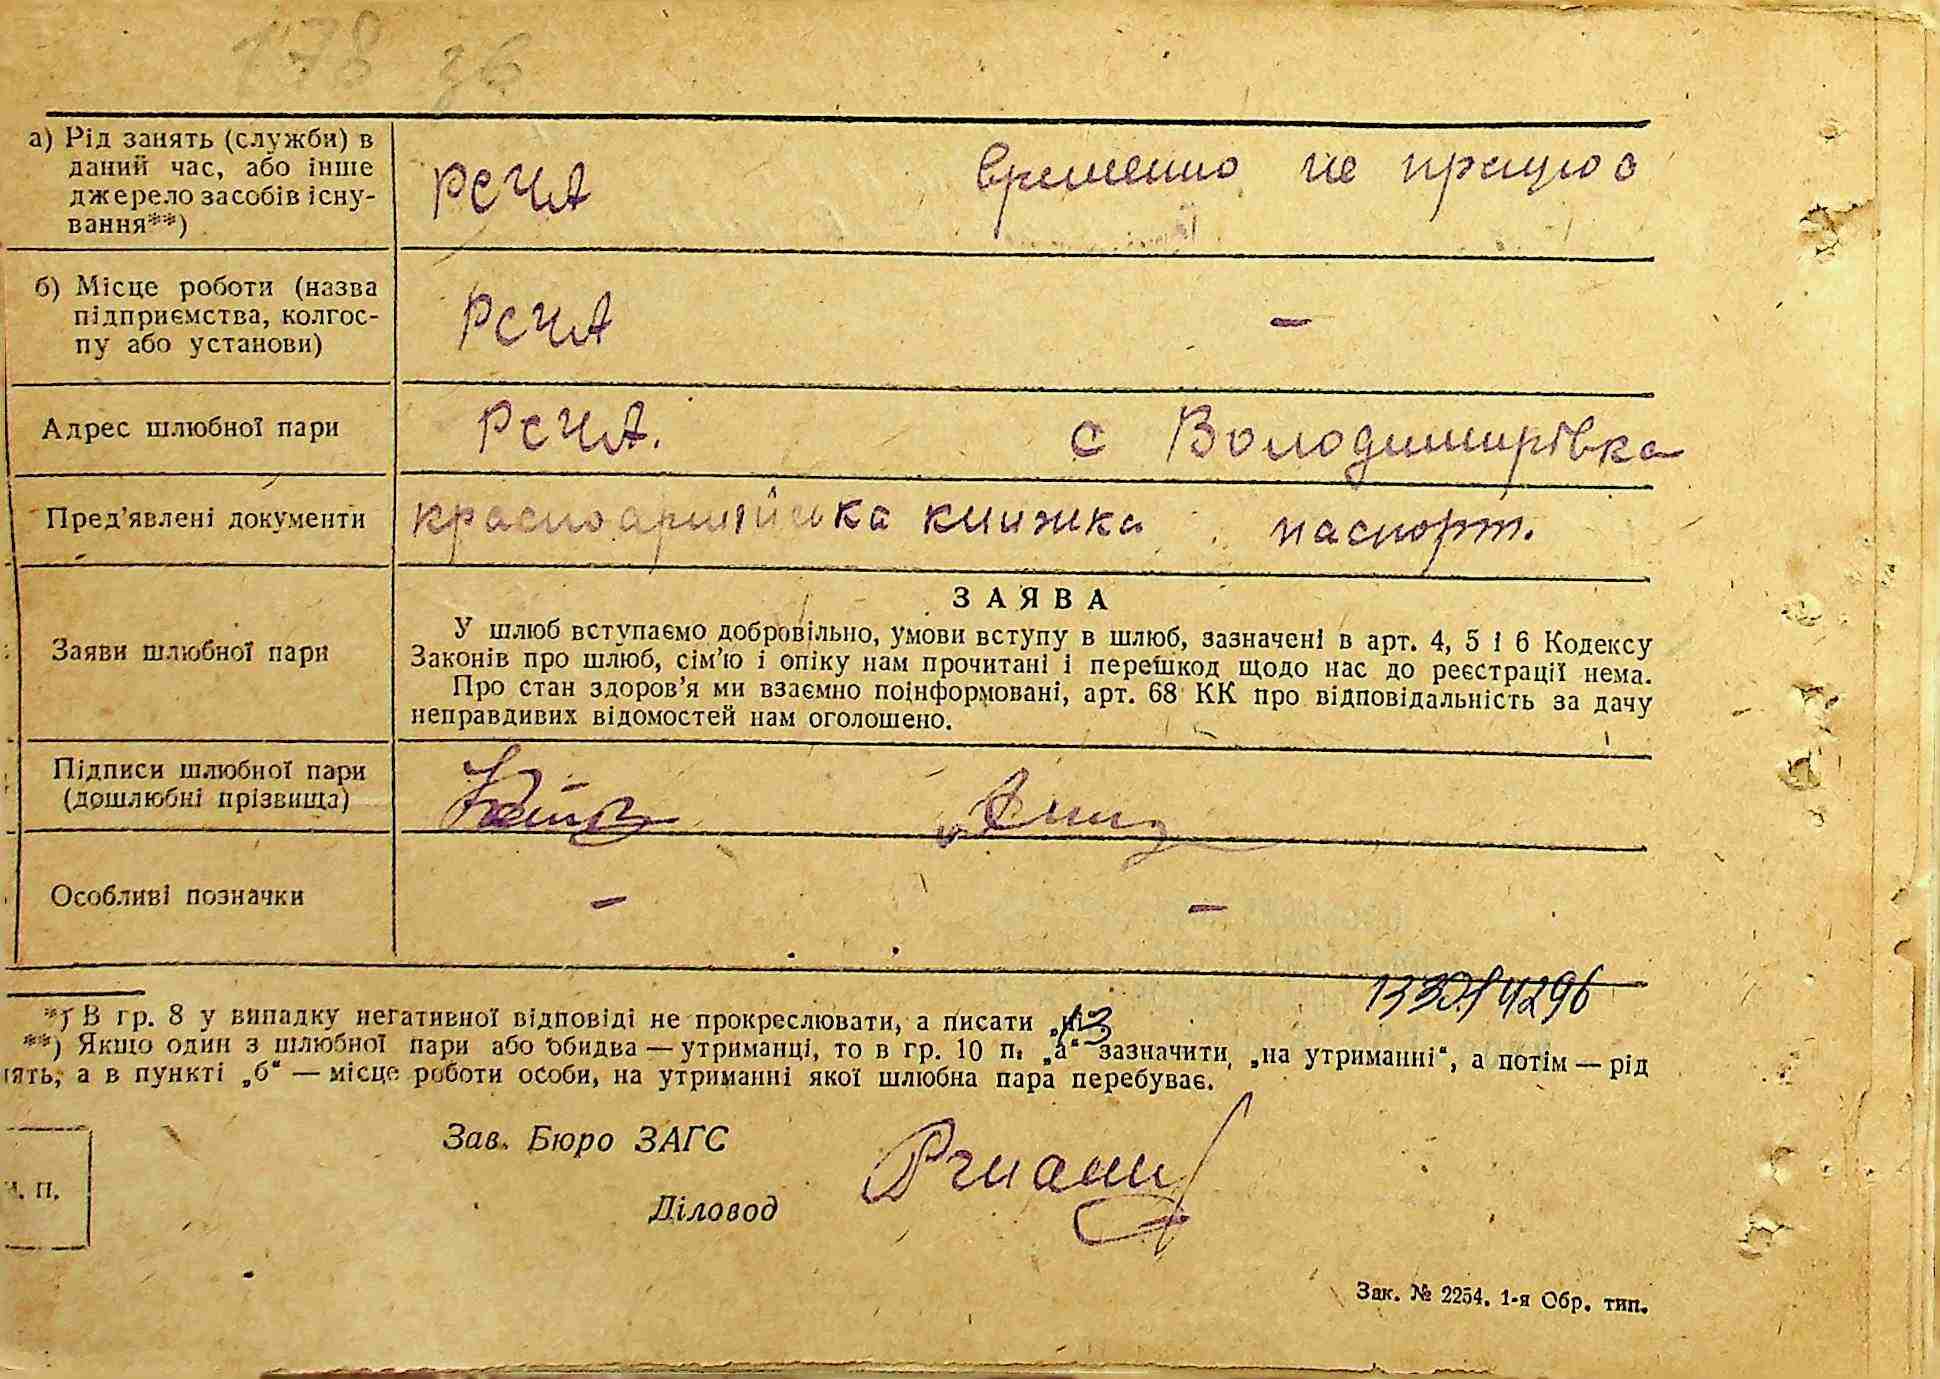 178 зв
а) Рід занять (служби) в
даний час, або інше
джерело засобів існу-
вання**)
РСЧА временно не працює
б) Місце роботи (назва
підприємства, колгос-
пу або установи)
РСЧА –
Адрес шлюбної пари
РСЧА. с Володимирівка
Пред'явлені документи
красноармійська книжка паспорт.
Заяви шлюбної пари
ЗАЯВА
У шлюб вступаємо добровільно, умови вступу в шлюб, зазначені в арт. 4, 5 і 6 Кодексу
Законів про шлюб, сім'ю і опіку нам прочитані і перешкод щодо нас до реєстрації нема.
Про стан здоров'я ми взаємно поінформовані, арт. 68 КК про відповідальність за дачу
неправдивих відомостей нам оголошено.
Підписи шлюбної пари
(дошлюбні прізвища)
Особливі позначки
– –
*) В гр. 8 у випадку негативної відповіді не прокреслювати, а писати „ні“
**) Якщо один з шлюбної пари або обидва — утриманці, то в гр. 10 п. „а“ зазначити „на утриманні“, а потім — рід
нять, а в пункті „б“ — місце роботи особи, на утриманні якої шлюбна пара перебуває.
Зав. Бюро ЗАГС
М. П.
Діловод
Зак. № 2254. 1-я Обр. тип.